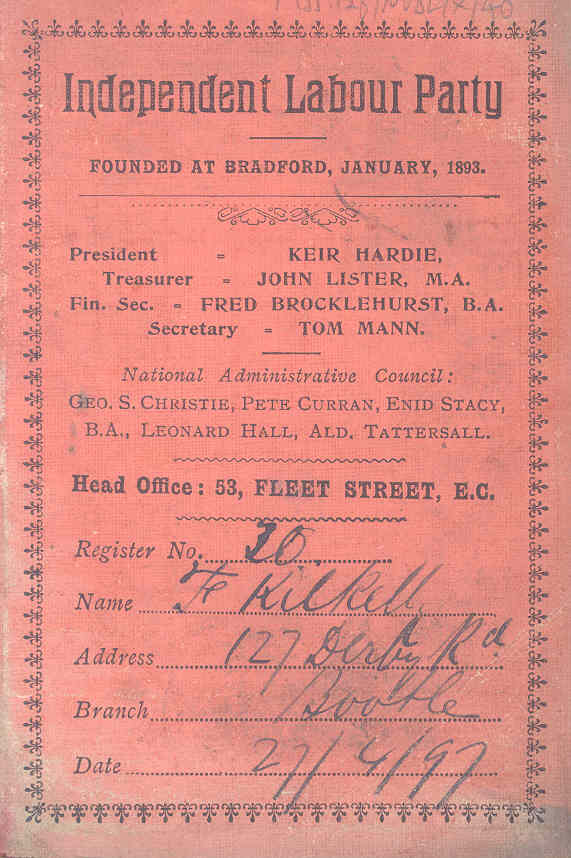 Independent Labour Party
FOUNDED AT BRADFORD, JANUARY, 1893.
President = KEIR HARDIE,
Treasurer = JOHN LISTER, M.A.
Fin. Sec. = FRED BROCKLEHURST, B.A.
Secretary = TOM MANN.
National Administrative Council:
GEO. S. CHRISTIE, PETE CURRAN, ENID STACY,
B.A., LEONARD HALL, ALD. TATTERSALL.
Head Office: 53, FLEET STREET, E.C.
Register No. 20.
Name F Kilkelly
Address 127 Derby Rd
Branch Bootle
Date 27/4/97